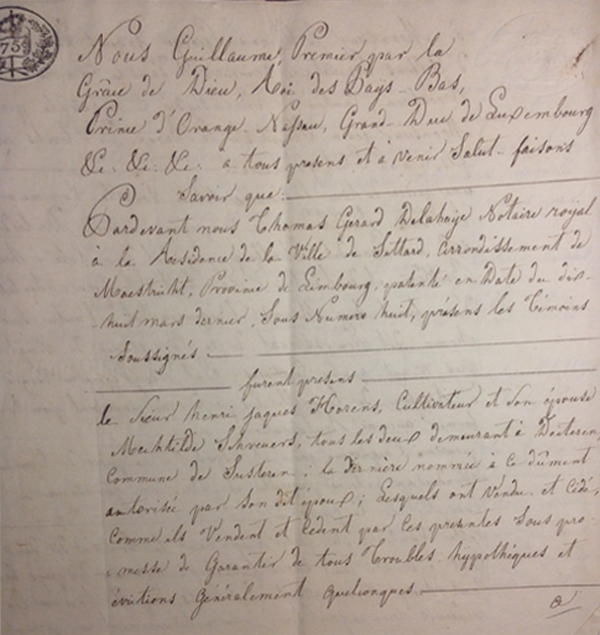 75
Nous Guillaume, Premier par la
Grâce de Dieu, Roi des Pays-Bas,
Prince d'Orange-Nassau, Grand-Duc de Luxembourg
&c. &c. &c. a tous presens et à venir Salut faisons
Savoir que:
Pardevant nous Thomas Gerard Delahaije Notaire roijal
à la Residence de la Ville de Sittard, arrondissement de
Maestricht, Province de Limbourg, patenté en Date du dix-
huit mars dernier, Sous Numero huit, présens les Témoins
Soussignés
furent presens
le Sieur henri jaques Florens, Cultivateur et Son épouse
Mechtilde Schreuers, tous les deux demeurant à Dieteren,
Commune de Susteren; la dernière nommée à ce dûment
autorisée par Son dit époux; Lesquels ont Vendu et Cédé,
Comme ils Vendent et Cedent par Ces presentes Sous pro-
messe de Garantir de tous Troubles hypothéques et
évictions Généralement quelconques
a